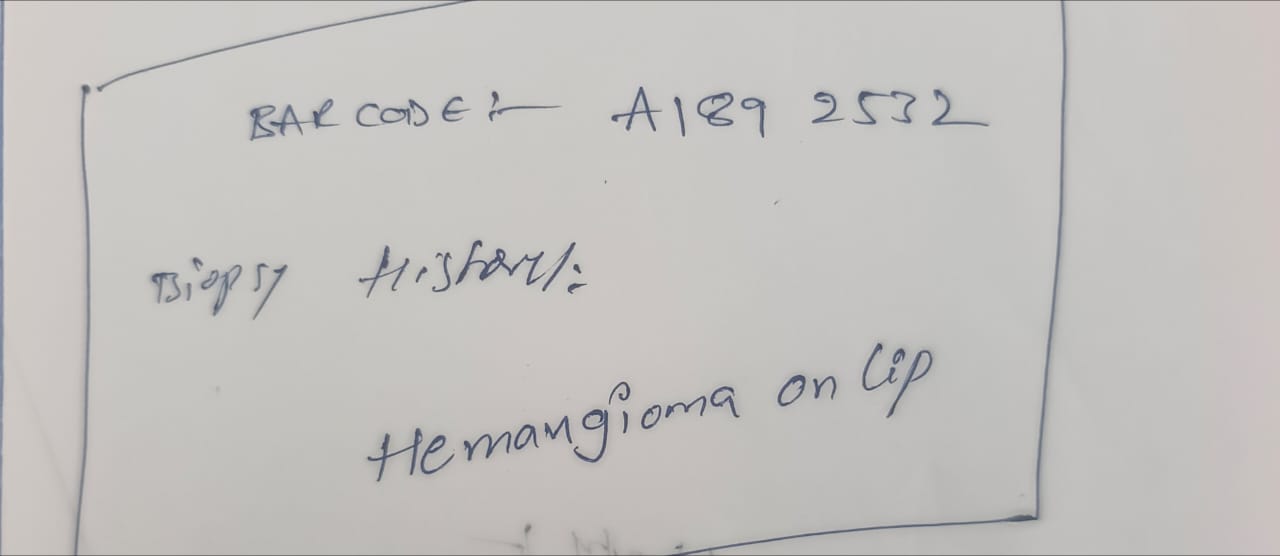 BARCODE:- A189 2532
Biopsy History:
Hemangioma on lip